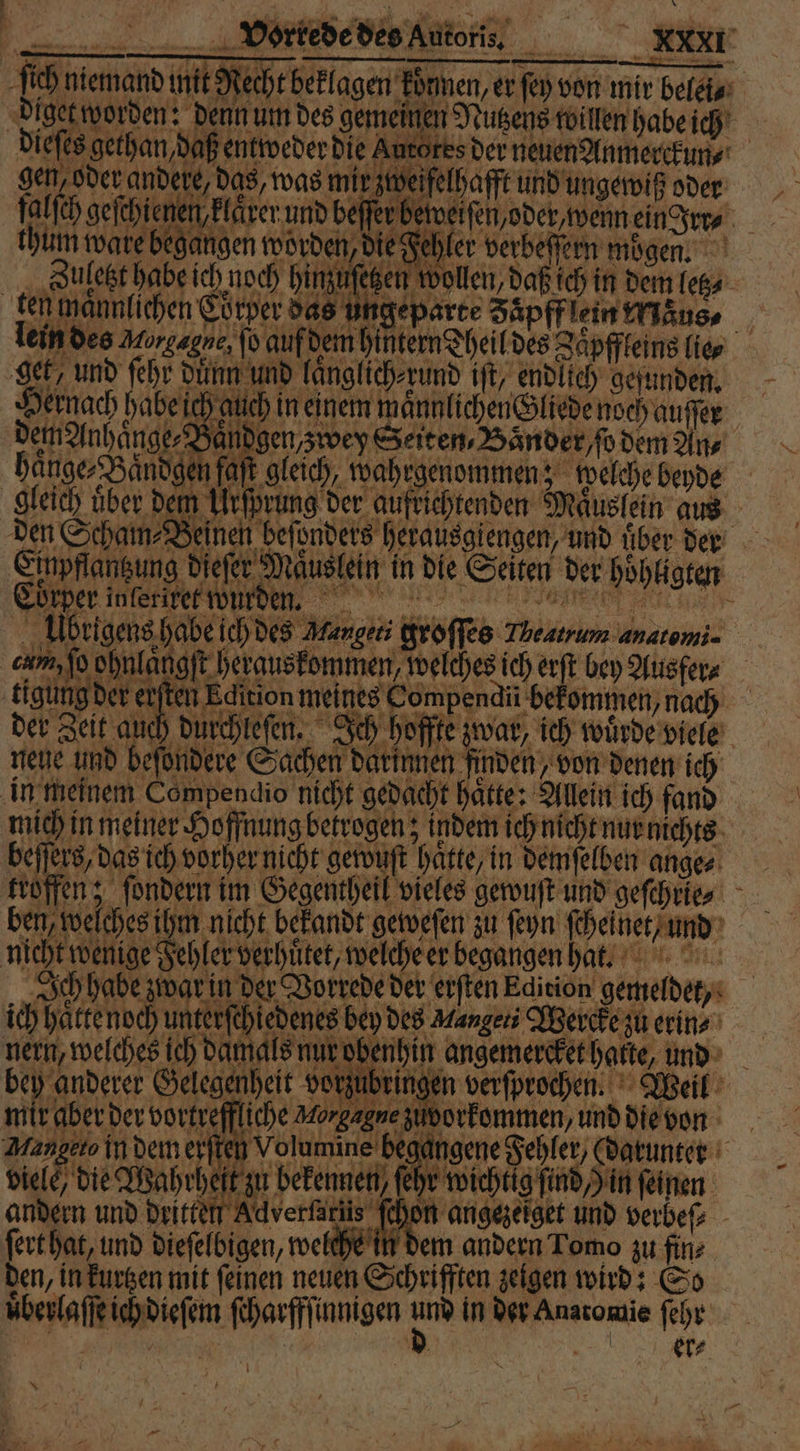 Vorrede des Autoris. XXXI
ſich niemand mit Recht beklagen koͤnnen, er ſey von mir belei⸗
diget worden: denn um des gemeinen Nutzens willen habe ich
dieſes gethan, daß entweder die Autores der neuen Anmerckun⸗
gen, oder andere, das, was mir zweifelhafft und ungewiß oder
falſch geſchienen, klaͤrer und beſſer beweiſen, oder, wenn ein Irr⸗
thum ware begangen worden, die Fehler verbeſſern moͤgen.
Zuletzt habe ich noch hinzuſetzen wollen, daß ich in dem letz⸗
ten maͤnnlichen Coͤrper das ungeparte Zaͤpfflein Maͤus⸗
lein des Morgagne, ſo auf dem hintern Theil des Zaͤpffleins lie⸗
get, und ſehr duͤnn und laͤnglich⸗rund iſt, endlich gefunden.
Hernach habe ich auch in einem maͤnnlichen Gliede noch auſſer
dem Anhaͤnge⸗Baͤndgen, zwey Seiten⸗Baͤnder, ſo dem An⸗
haͤnge⸗Baͤndgen faſt gleich, wahrgenommen; welche beyde
gleich uͤber dem Urſprung der aufrichtenden Maͤuslein aus
den Scham⸗Beinen beſonders herausgiengen, und uͤber der
Einpflantzung dieſer Maͤuslein in die Seiten der hoͤhligten
Coͤrper inſeriret wurden.
Ubrigens habe ich des Mangeti groſſes Theatrum anatomi-
cum, ſo ohnlaͤngſt herauskommen, welches ich erſt bey Ausfer⸗
tigung der erſten Edition meines Compendii bekommen, nach
der Zeit auch durchleſen. Ich hoffte zwar, ich wuͤrde viele
neue und beſondere Sachen darinnen finden, von denen ich
in meinem Compendio nicht gedacht haͤtte: Allein ich fand
mich in meiner Hoffnung betrogen; indem ich nicht nur nichts
beſſers, das ich vorher nicht gewuſt haͤtte, in demſelben ange⸗
troffen; ſondern im Gegentheil vieles gewuſt und geſchrie⸗
ben, welches ihm nicht bekandt geweſen zu ſeyn ſcheinet, und
nicht wenige Fehler verhuͤtet, welche er begangen hat.
Ich habe zwar in der Vorrede der erſten Edition gemeldet,
ich haͤtte noch unterſchiedenes bey des Mangeti Wercke zu erin⸗
nern, welches ich damals nur obenhin angemercket hatte, und
bey anderer Gelegenheit vorzubringen verſprochen. Weil
mir aber der vortreffliche Morgagne zuvorkommen, und die von
Mangeto in dem erſten Volumine begangene Fehler, (darunter
viele, die Wahrheit zu bekennen, ſehr wichtig ſind,) in ſeinen
andern und dritten Adverſariis ſchon angezeiget und verbeſ⸗
ſert hat, und dieſelbigen, welche in dem andern Tomo zu fin⸗
den, in kurtzen mit ſeinen neuen Schrifften zeigen wird: So
uͤberlaſſe ich dieſem ſcharffſinnigen und in der Anatomie ſehr
d er⸗